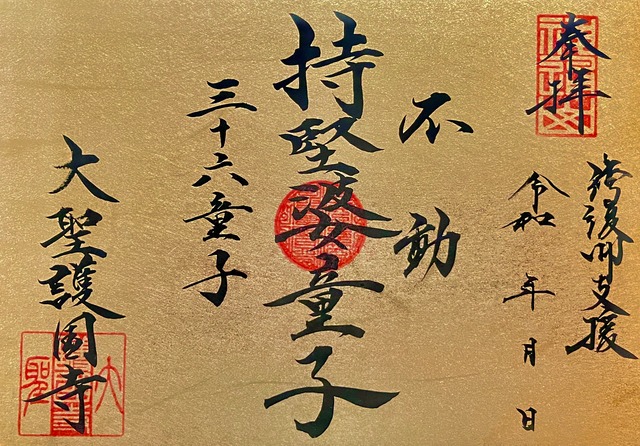 奉拝
支援
令和 年 月 日
不動
持堅婆童子
三十六童子
大聖護國寺